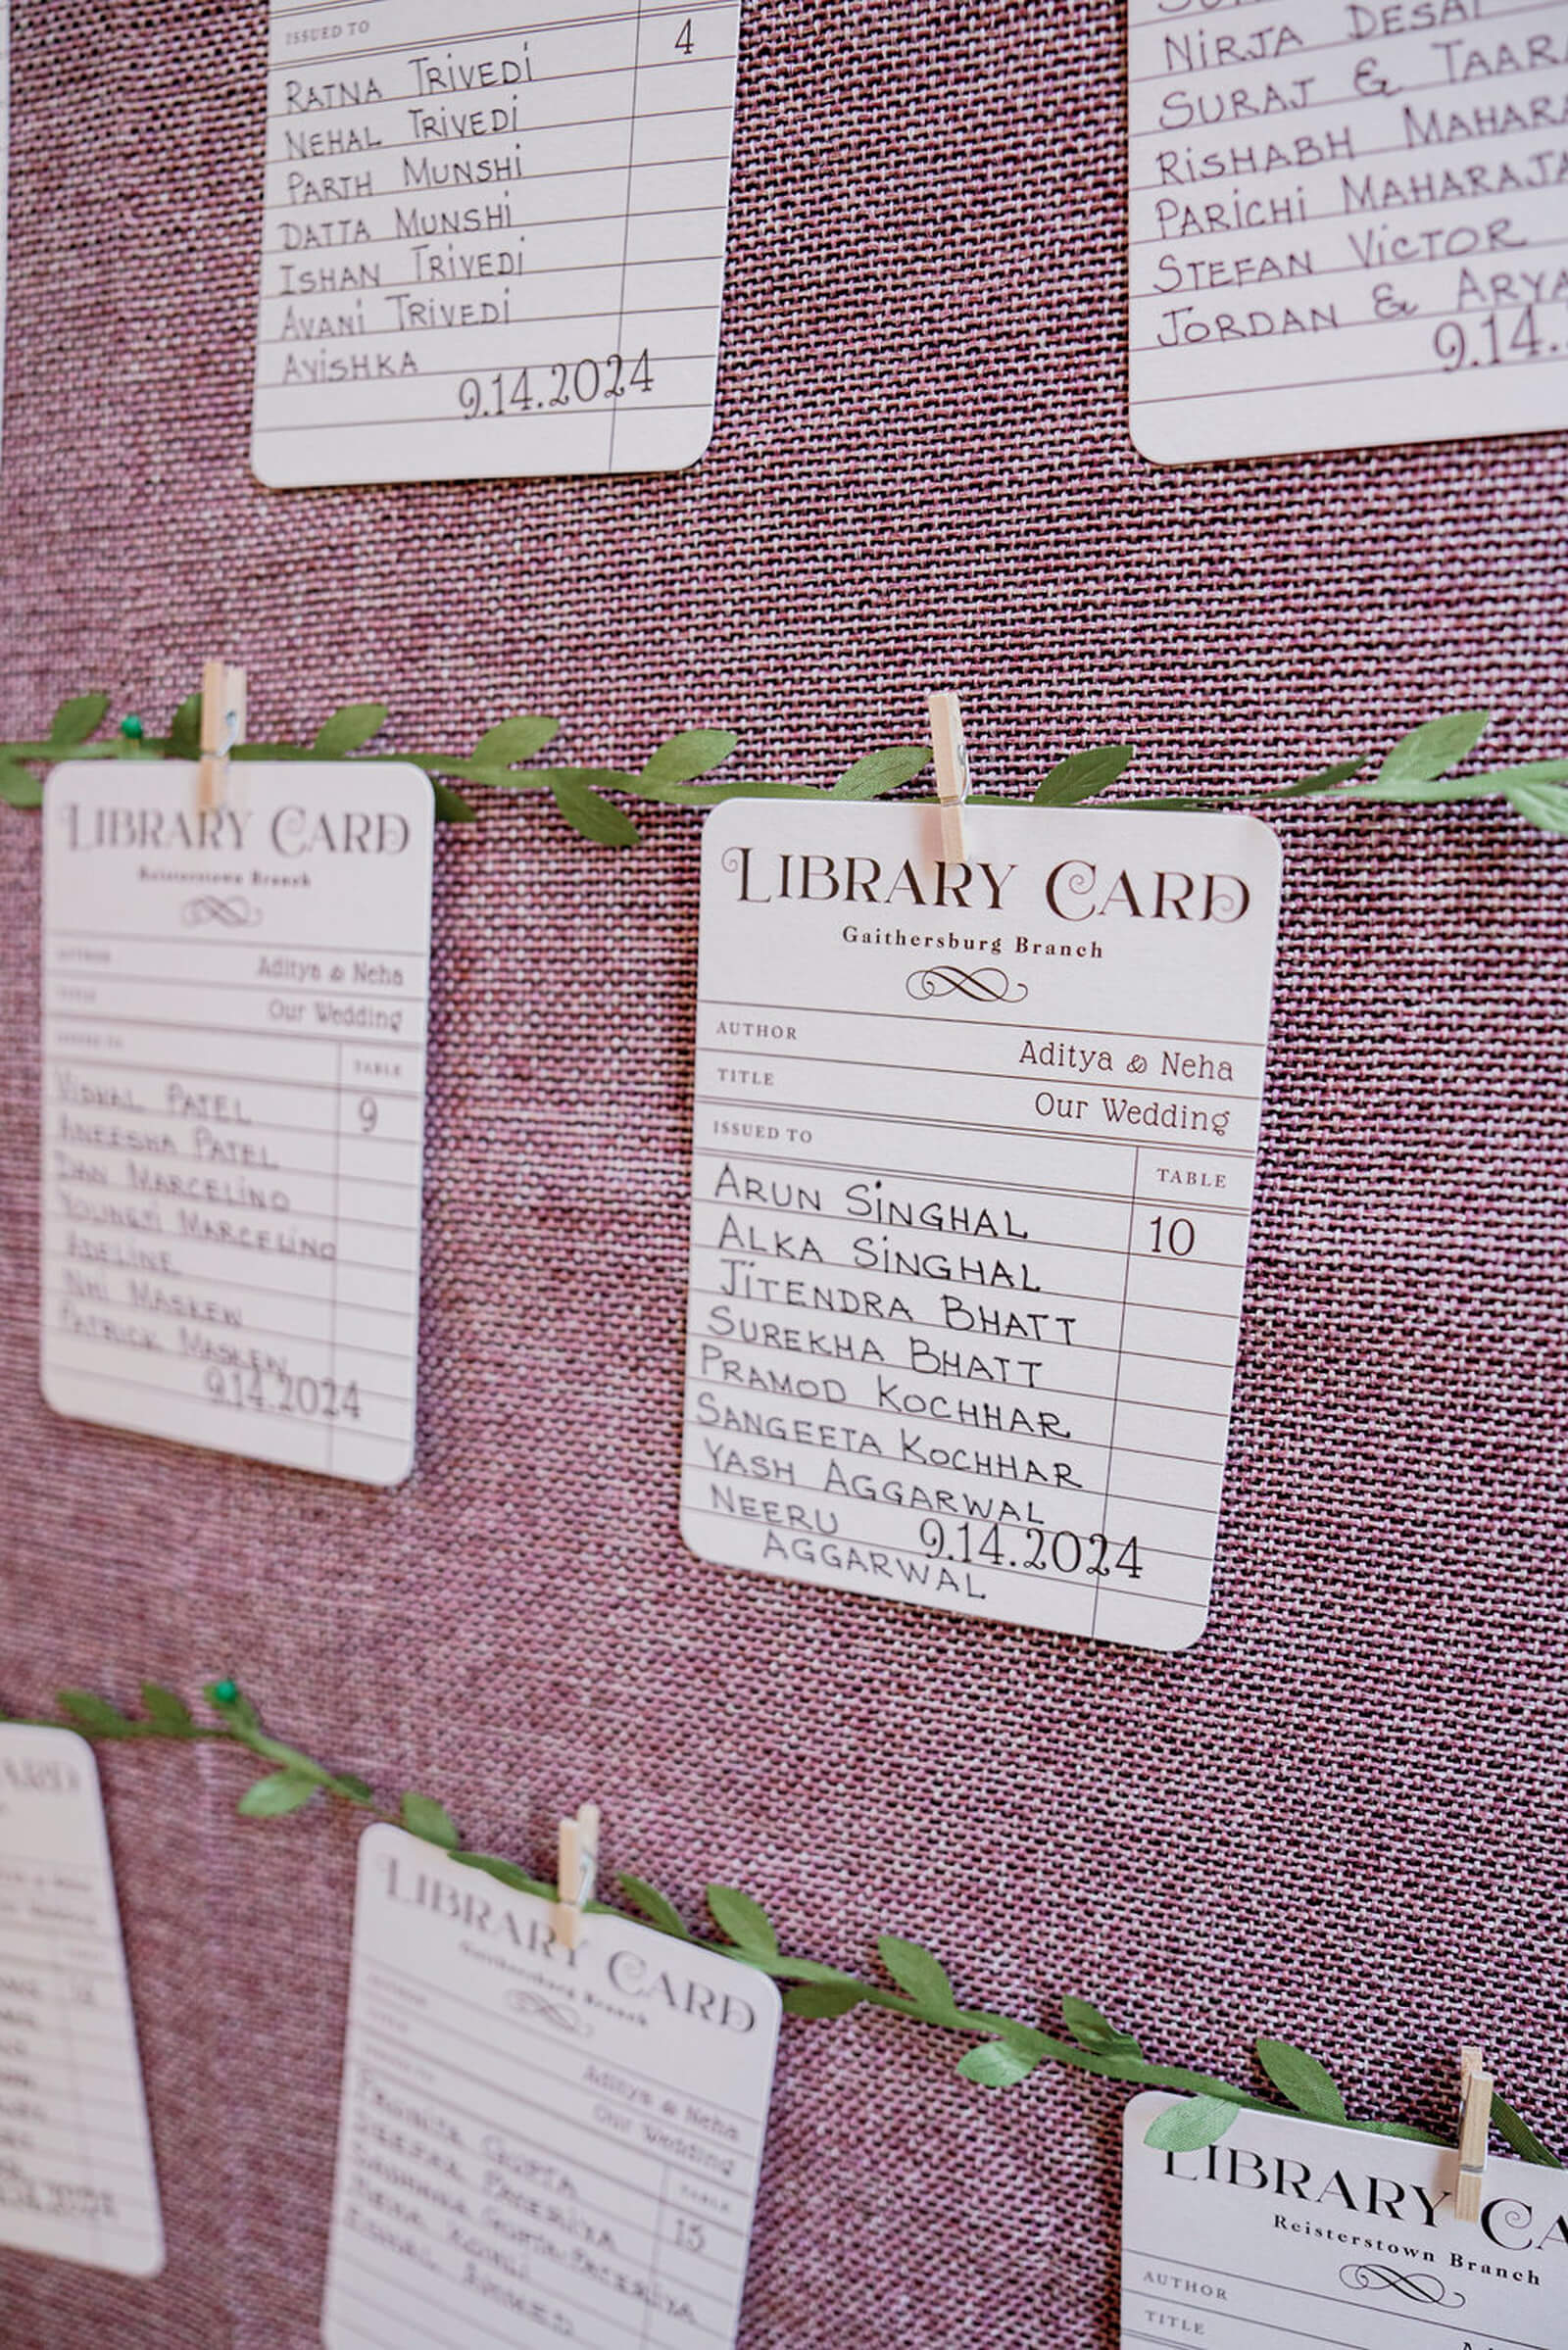 ISSUED TO
4
RATNA TRIVEDI
NEHAL TRIVEDI
PARTH MUNSHI
DATTA MUNSHI
ISHAN TRIVEDI
AVANI TRIVEDI
AVISHKA
9.14.2024
NIRJA DESAI
SURAJ &
RISHABH
PARICHI
STEFAN VICTOR
JORDAN &
9.14.
LIBRARY CARD
Reisterstown Branch
AUTHOR Aditya & Neha
TITLE Our Wedding
ISSUED TO TABLE
VISHAL PATEL 9
ANEESHA PATEL
DAN MARCELINO
MARCELINO
ADELINE
NHI MASKEW
PATRICK MASKEW
9.14.2024
LIBRARY CARD
Gaithersburg Branch
AUTHOR Aditya & Neha
TITLE Our Wedding
ISSUED TO TABLE
ARUN SINGHAL 10
ALKA SINGHAL
JITENDRA BHATT
SUREKHA BHATT
PRAMOD KOCHHAR
SANGEETA KOCHHAR
YASH AGGARWAL
NEERU
AGGARWAL
9.14.2024
LIBRARY CARD
Gaithersburg Branch
Aditya & Neha
Our Wedding
TABLE
GUPTA 15
LIBRARY
Reisterstown Branch
AUTHOR
TITLE